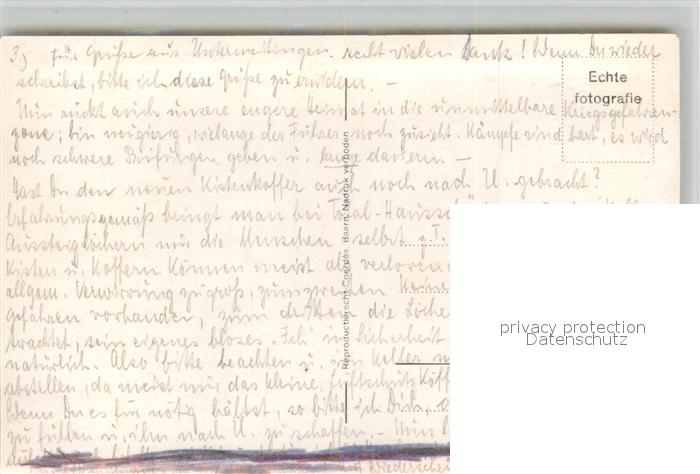 3.) Für Grüße aus Untermeitingen recht vielen Dank! Wenn Du wieder
schreibst, bitte ich diese Grüße zu erwidern. –
Echte
fotografie
Nun rückt auch unsere engere Heimat in die unmittelbare Kriegsgefahren-
zone; bin neugierig, wielange der Führer noch zusieht. Kämpfe sind hart, es wird
noch schwere Prüfungen geben u. lange dauern –
Hast Du den neuen Kistenkoffer auch noch nach U. gebracht?
Erfahrungsgemäß bringt man bei Total-
nur die Menschen selbst z.T.
Kisten u. Koffern können meist als verloren
allgem. Verwirrung zu groß, zum zweiten keine
gefahren vorhanden, zum dritten die Löcher
trachtet, sein eigenes bloses "Ich" in Sicherheit
natürlich. Also bitte beachten u. im Keller
abstellen, da meist nur das kleine Luftschutz
Wenn Du es für nötig hältst, so bitte ich Dich,
zu füllen u. ihn nach U. zu schaffen. – Nun
Reproductierecht Coerdes, Baarn, Nadruk verboden
privacy protection
Datenschutz